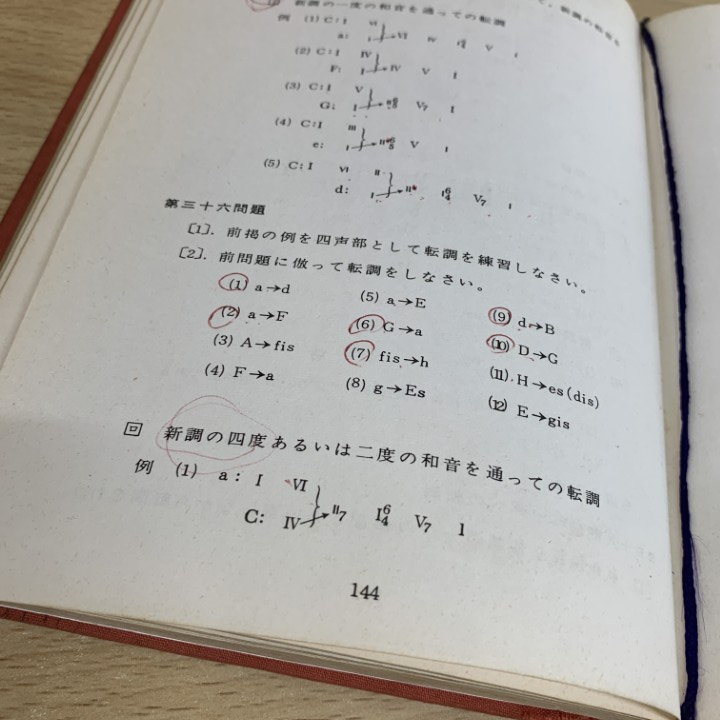 新調の一度の和音を通っての転調
例 (1) C: I VI
a: I VI IV I6/4 V I
(2) C: I IV
F: I IV V I
(3) C: I V
G: I V7 I
(4) C: I III
e: I II6/5 V I
(5) C: I VI II
d: I II I6/4 V7 I
第三十六問題
〔1〕. 前掲の例を四声部として転調を練習しなさい。
〔2〕. 前問題に倣って転調をしなさい。
(1) a→d (5) a→E (9) d→B
(2) a→F (6) G→a (10) D→G
(3) A→fis (7) fis→h (11). H→es(dis)
(4) F→a (8) g→Es (12) E→gis
回 新調の四度あるいは二度の和音を通っての転調
例 (1) a: I VI
C: IV II7 I6/4 V7 I
144